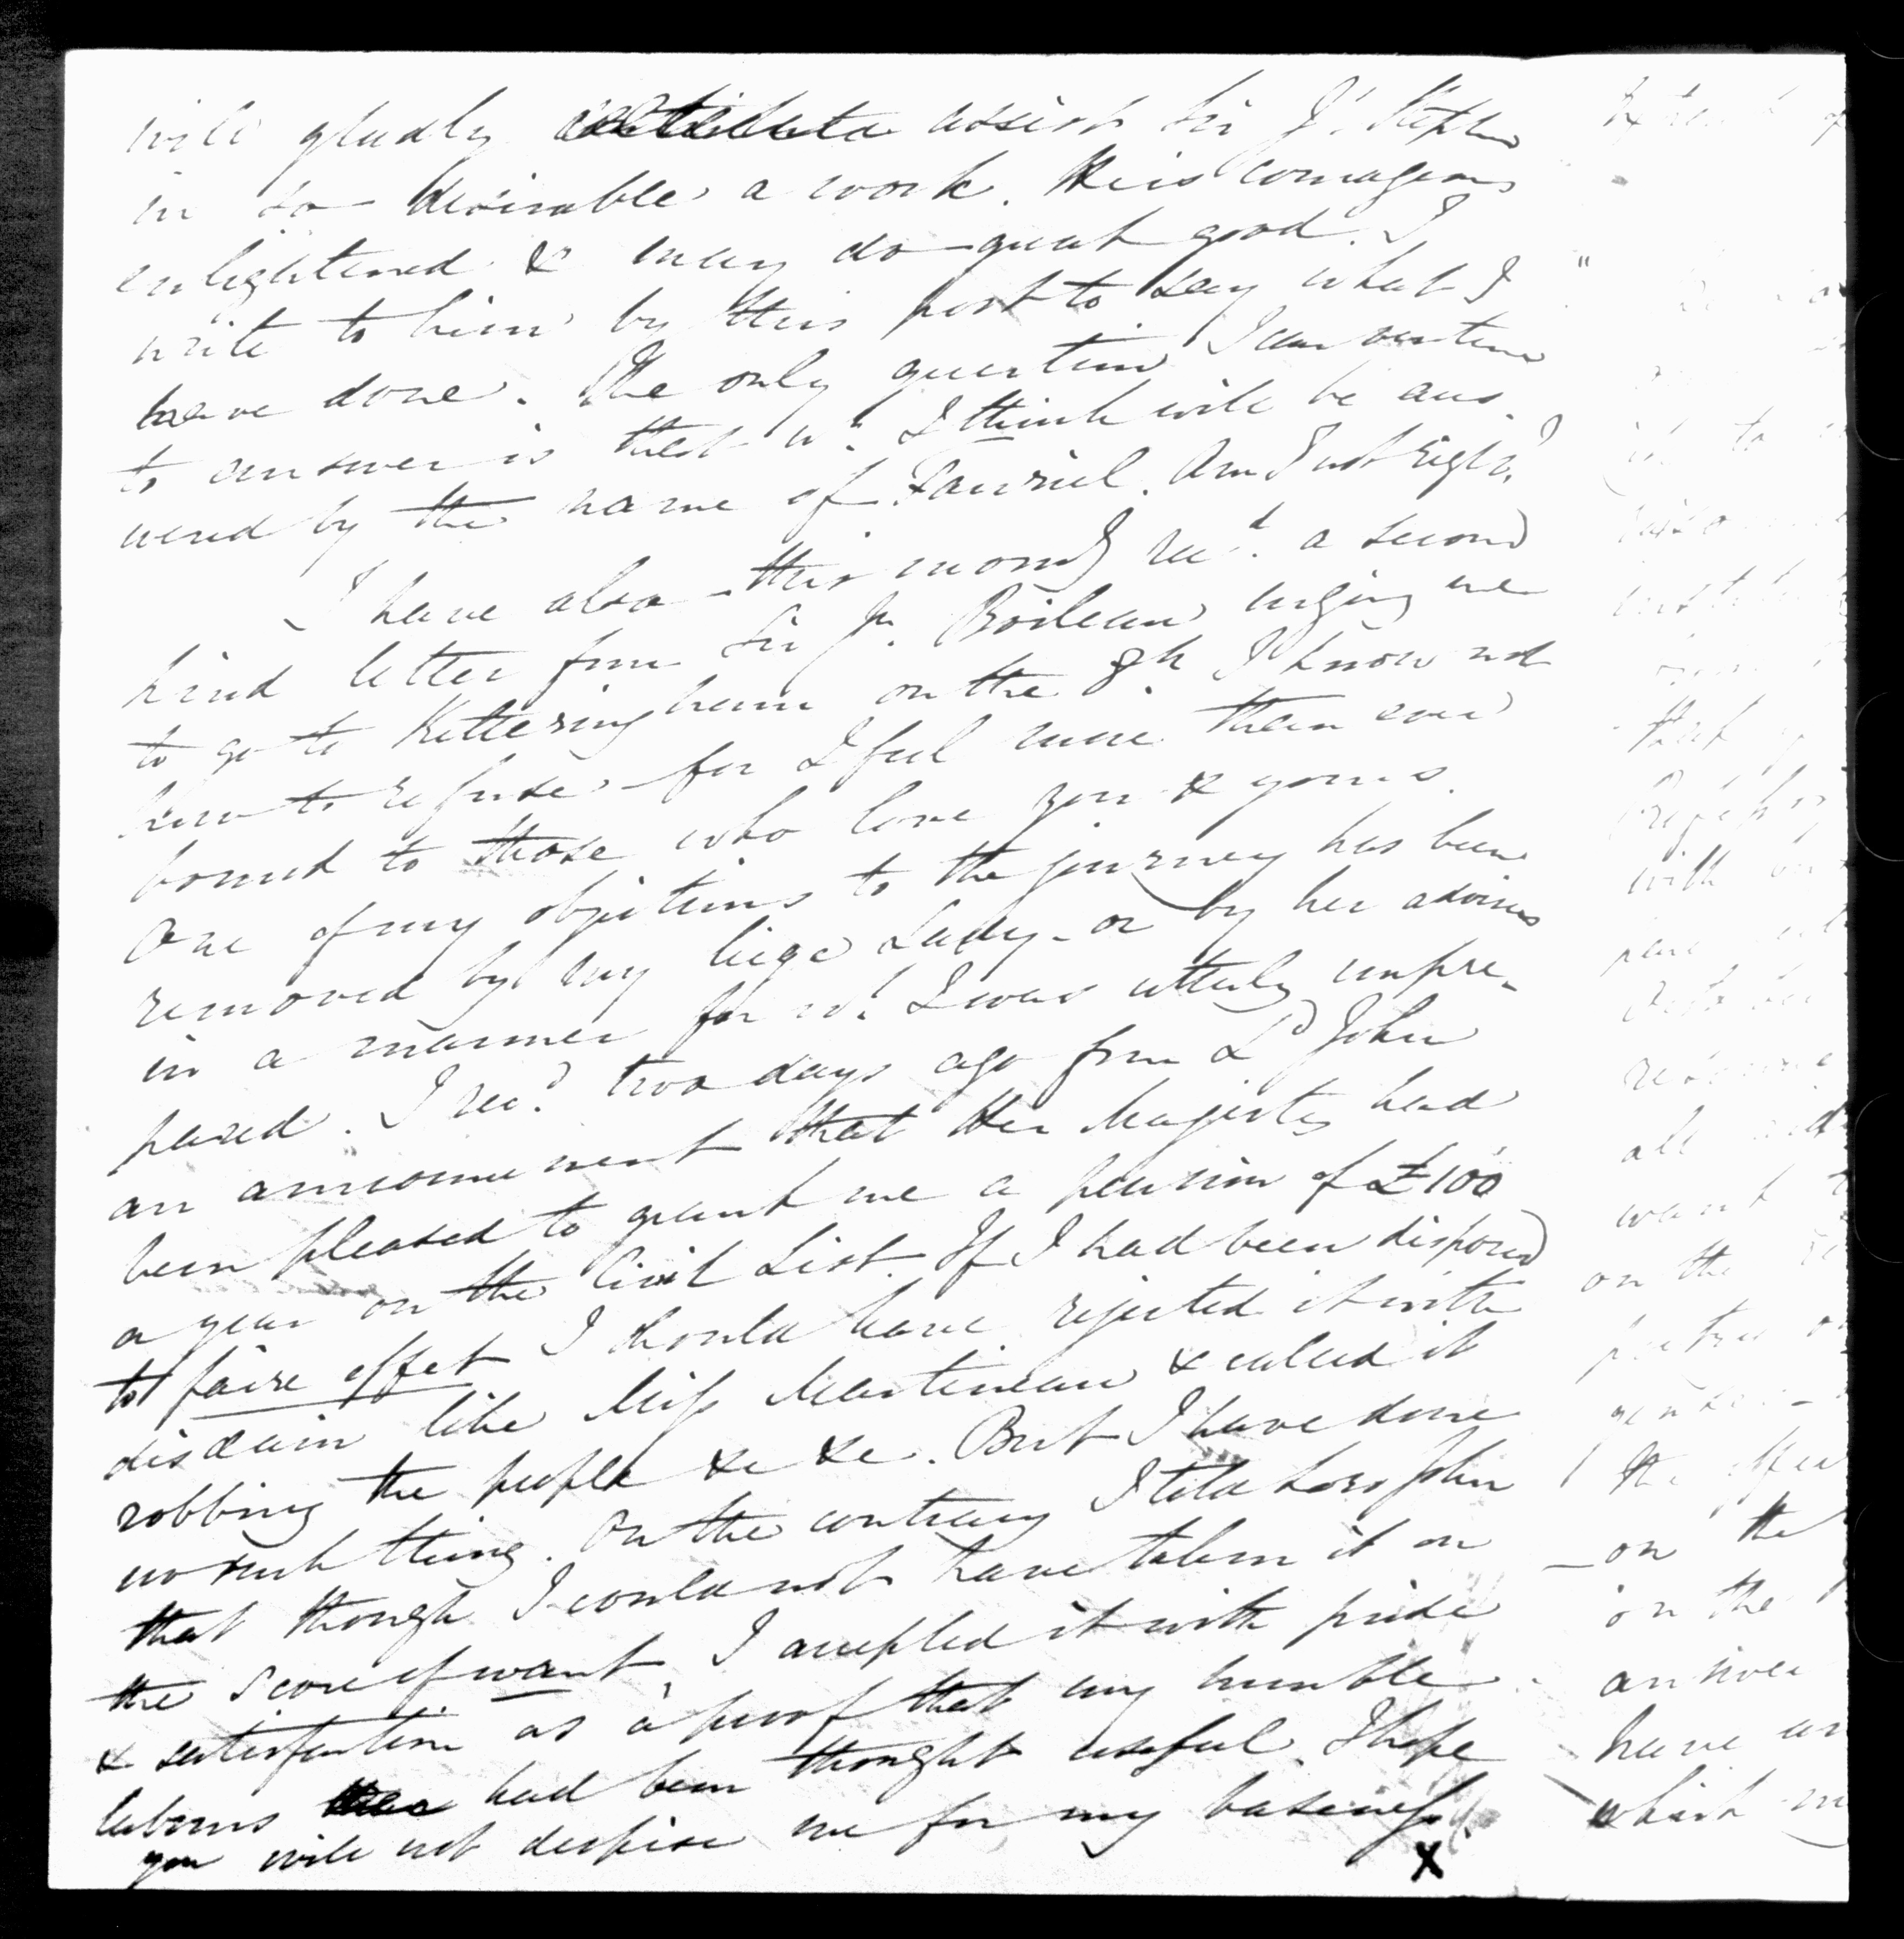 will gladly assist Sir J. Stephen
in so desirable a work. He is courageous
enlightened & may do great good. I
write to him by this post to say what I
have done. The only question I can venture
to answer is that wh. I think will be ans-
wered by the name of Fauriel. Am I not right?
I have also this morng recd. a second
kind letter from Sir J. Boileau urging me
to go to Ketteringham on the 8th I know not
how to refuse - for I feel more than ever
bound to those who love you & yours.
One of my objections to the journey has been
removed by my liege Lady - or by her advisers
in a manner for wh. I was utterly unpre-
pared. I recd. two days ago from Ld John
an announcement that Her Majesty had
been pleased to grant me a pension of £100
a year on the Civil List. If I had been disposed
to faire effet I should have rejected it with
disdain like Miss Martineau & called it
robbing the people &c &c. But I have done
no such thing. On the contrary I told Lord John
that though I could not have taken it on
the score of want, I accepted it with pride
& satisfaction as a proof that my humble
labours had been thought useful. I hope
you will not despise me for my baseness.
X
"
to
that
with
all
want
on the
on the
on the
have
which